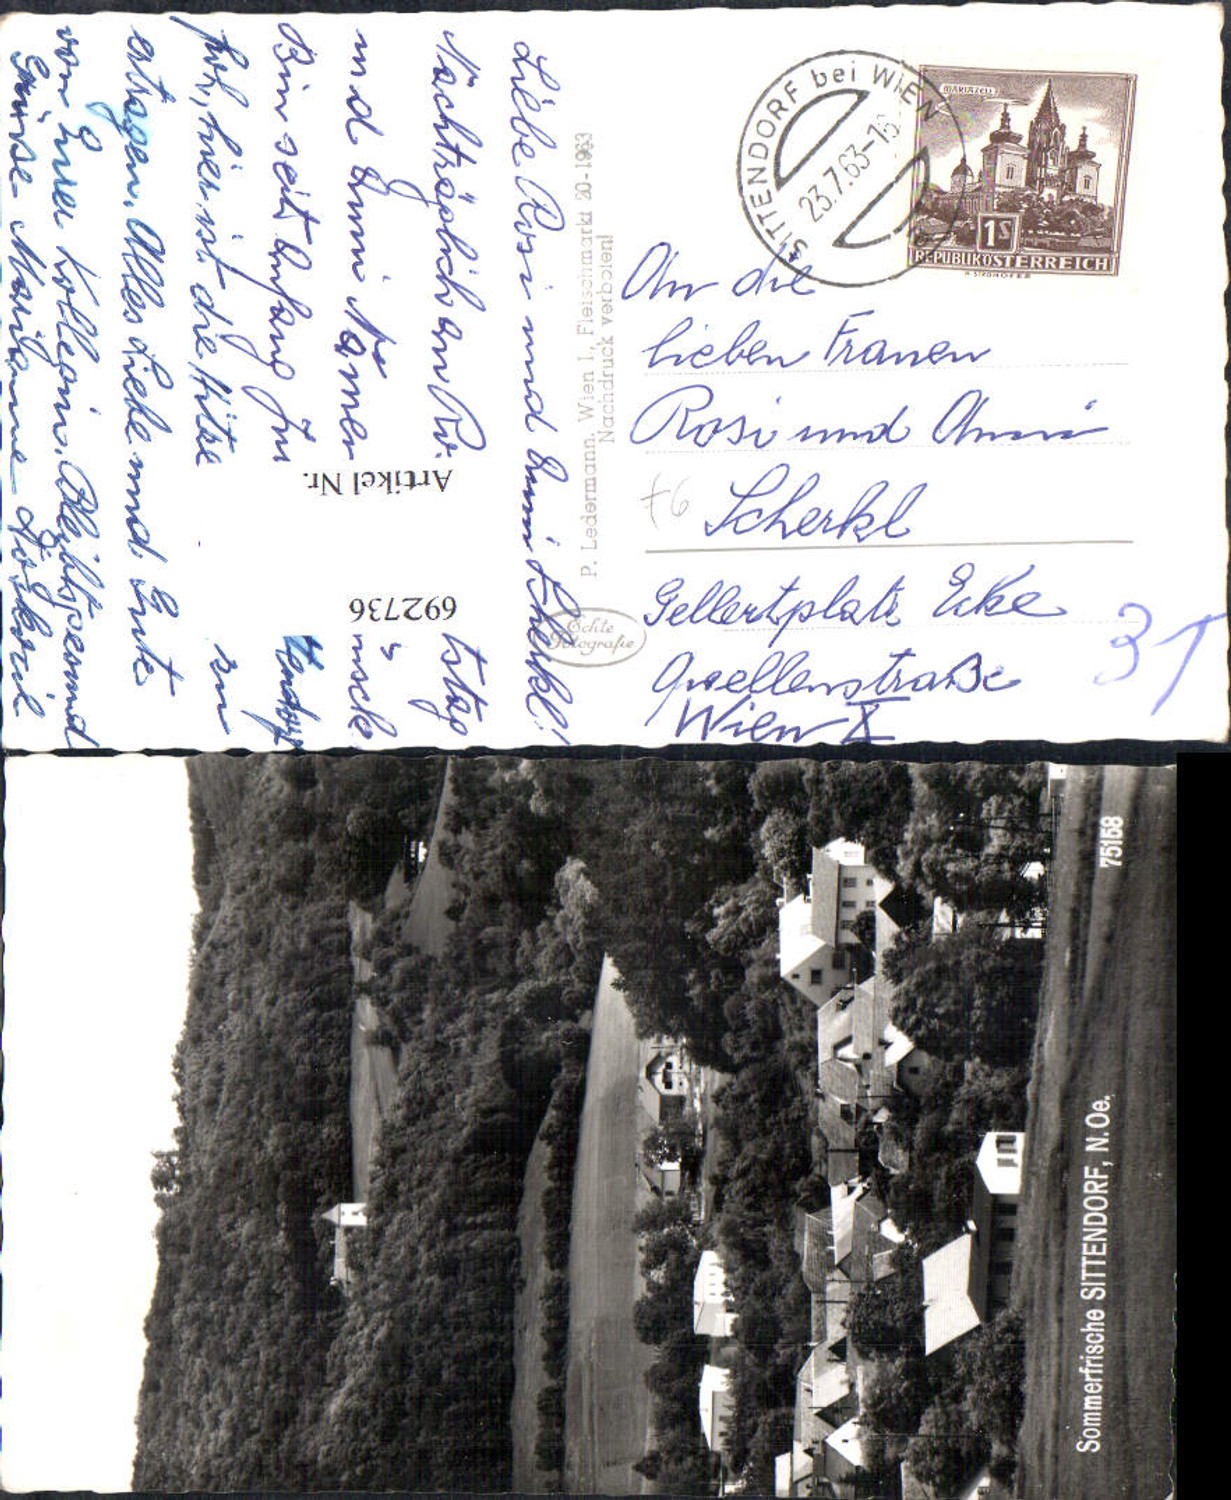 SITTENDORF bei WIEN
23.7.63-18
MARIAZELL
1S
REPUBLIK ÖSTERREICH
H. STROHOFER
An die
lieben Frauen
Rosi und Anni
Scherkl
Gellertplatz Ecke
Quellenstraße
Wien X
31
f6
P. Ledermann, Wien I., Fleischmarkt 20-1963
Nachdruck verboten!
Echte
Fotografie
Liebe Rosi und Anni Scherkl!
Nachträglich am
und Anni
Bin seit Anfang Juli
froh, hier ist die Hitze zu
ertragen. Alles Liebe und Gute
von Eurer Kollegin. Bleibt gesund
Grüsse Marianne
Artikel Nr.
692736
75158
Sommerfrische SITTENDORF, N.Oe.